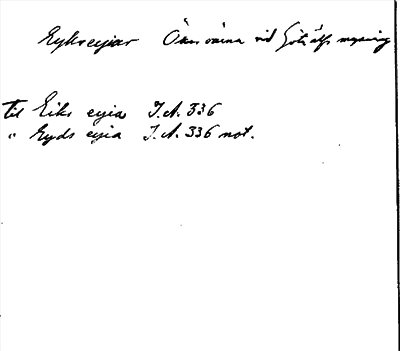 Eykseyiar Öarnaina vid Göta älfs mynning
til Eiks eyia I.A. 336
" Eyds eyia I.A. 336 not.